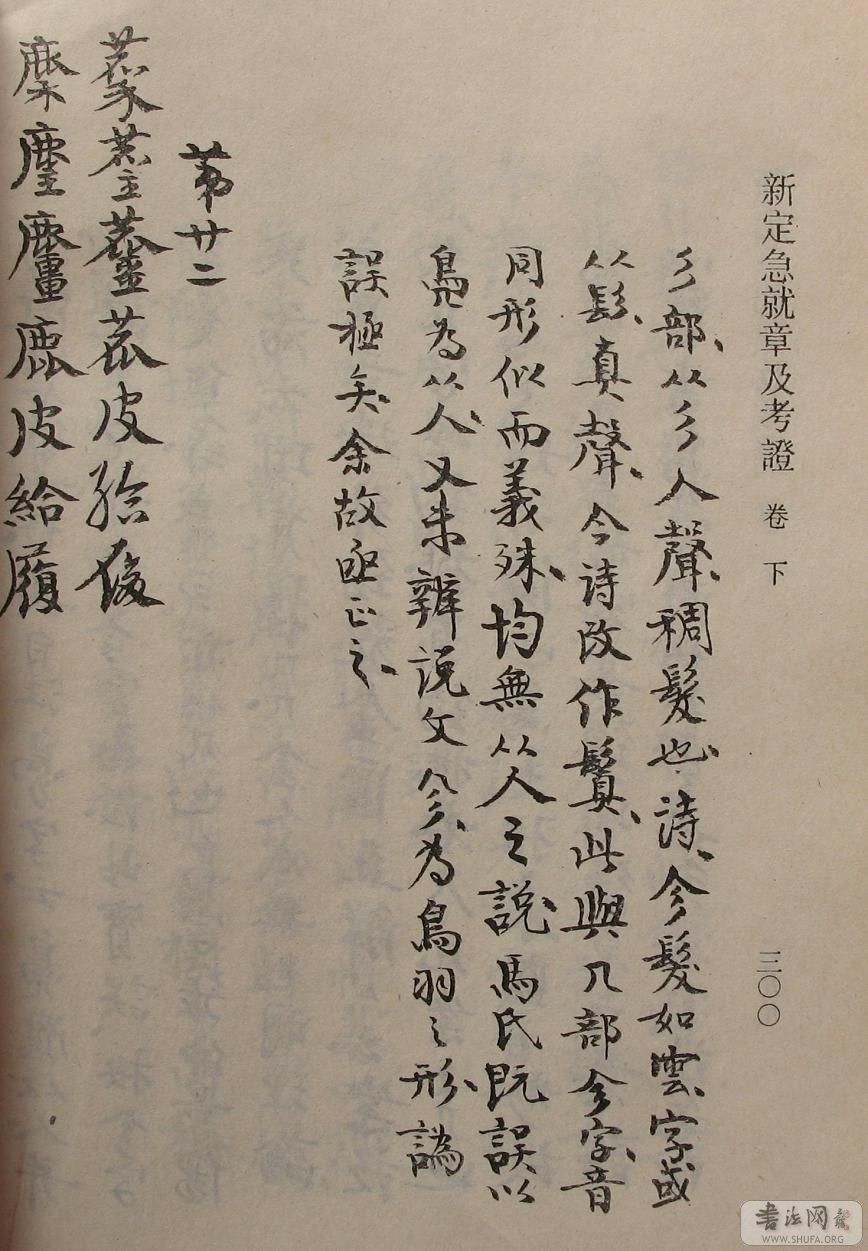 新定急就章及考證 卷下
三〇〇
彡部、从彡人聲、稠髮也、詩、㐱髮如雲、字或
从髟、真聲、今詩改作鬒、此與几部㐱字、音
同形似而義殊、均無从人之說、馬氏既誤以
鳧為从人、又未辨說文㐱、為鳥羽之形、譌
誤極矣、余故亟正之、
苐廿二
皮給履
麋麈麠麀皮給履
書法网
WWW.SHUFA.ORG